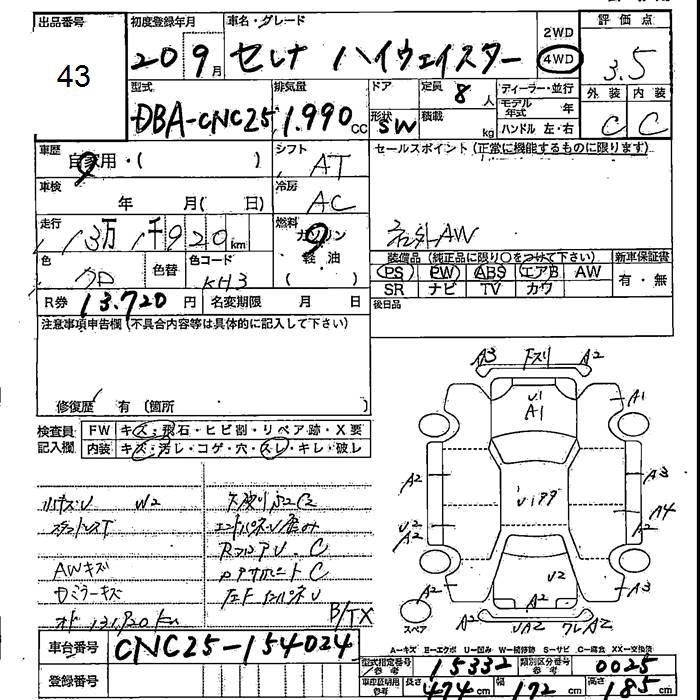 出品番号
43
初度登録年月
20 9月
車名・グレード
セレナ ハイウェイスター
2WD
4WD
評価点
3.5
型式
DBA-CNC25
排気量
1.990 CC
ドア
形状 SW
定員 8人
積載 kg
ディーラー・並行
モデル年式 年
ハンドル 左・右
外装 内装
C C
車歴
自家用・( )
シフト
AT
車検
年 月( 日)
冷房
AC
走行
13万1千920km
燃料
ガソリン
軽油
色
クロ
色替
色コード
KH3
R券 13.720円
名変期限 月 日
セールスポイント(正常に機能するものに限ります)
社外AW
装備品(純正品に限り○をつけて下さい)
新車保証書
PS PW ABS エアB AW
SR ナビ TV カワ
有・無
後日品
注意事項申告欄(不具合内容等は具体的に記入して下さい)
修復歴 有(箇所 )
検査員記入欄
FW キズ・飛石・ヒビ割・リペア跡・X要
内装 キズ・汚レ・コゲ・穴・スレ・キレ・破レ
小キズ U W2
AWキズ
Dミラーキズ
オド 131,920km
R コアU. C
B/TX
A3 A2
U1
A1
A1
A2
A3
A4
U2
A2
A2
U2
A2
A2
A3
UA2
スペア
A-キズ E-エクボ U-凹み W-補修跡 S-サビ C-腐食 XX-交換済
車台番号 CNC25-154024
登録番号
型式指定番号 参考 15332
類別区分番号 参考 0025
車庫証明用 参考
長さ 474cm
幅 172cm
高さ 185cm